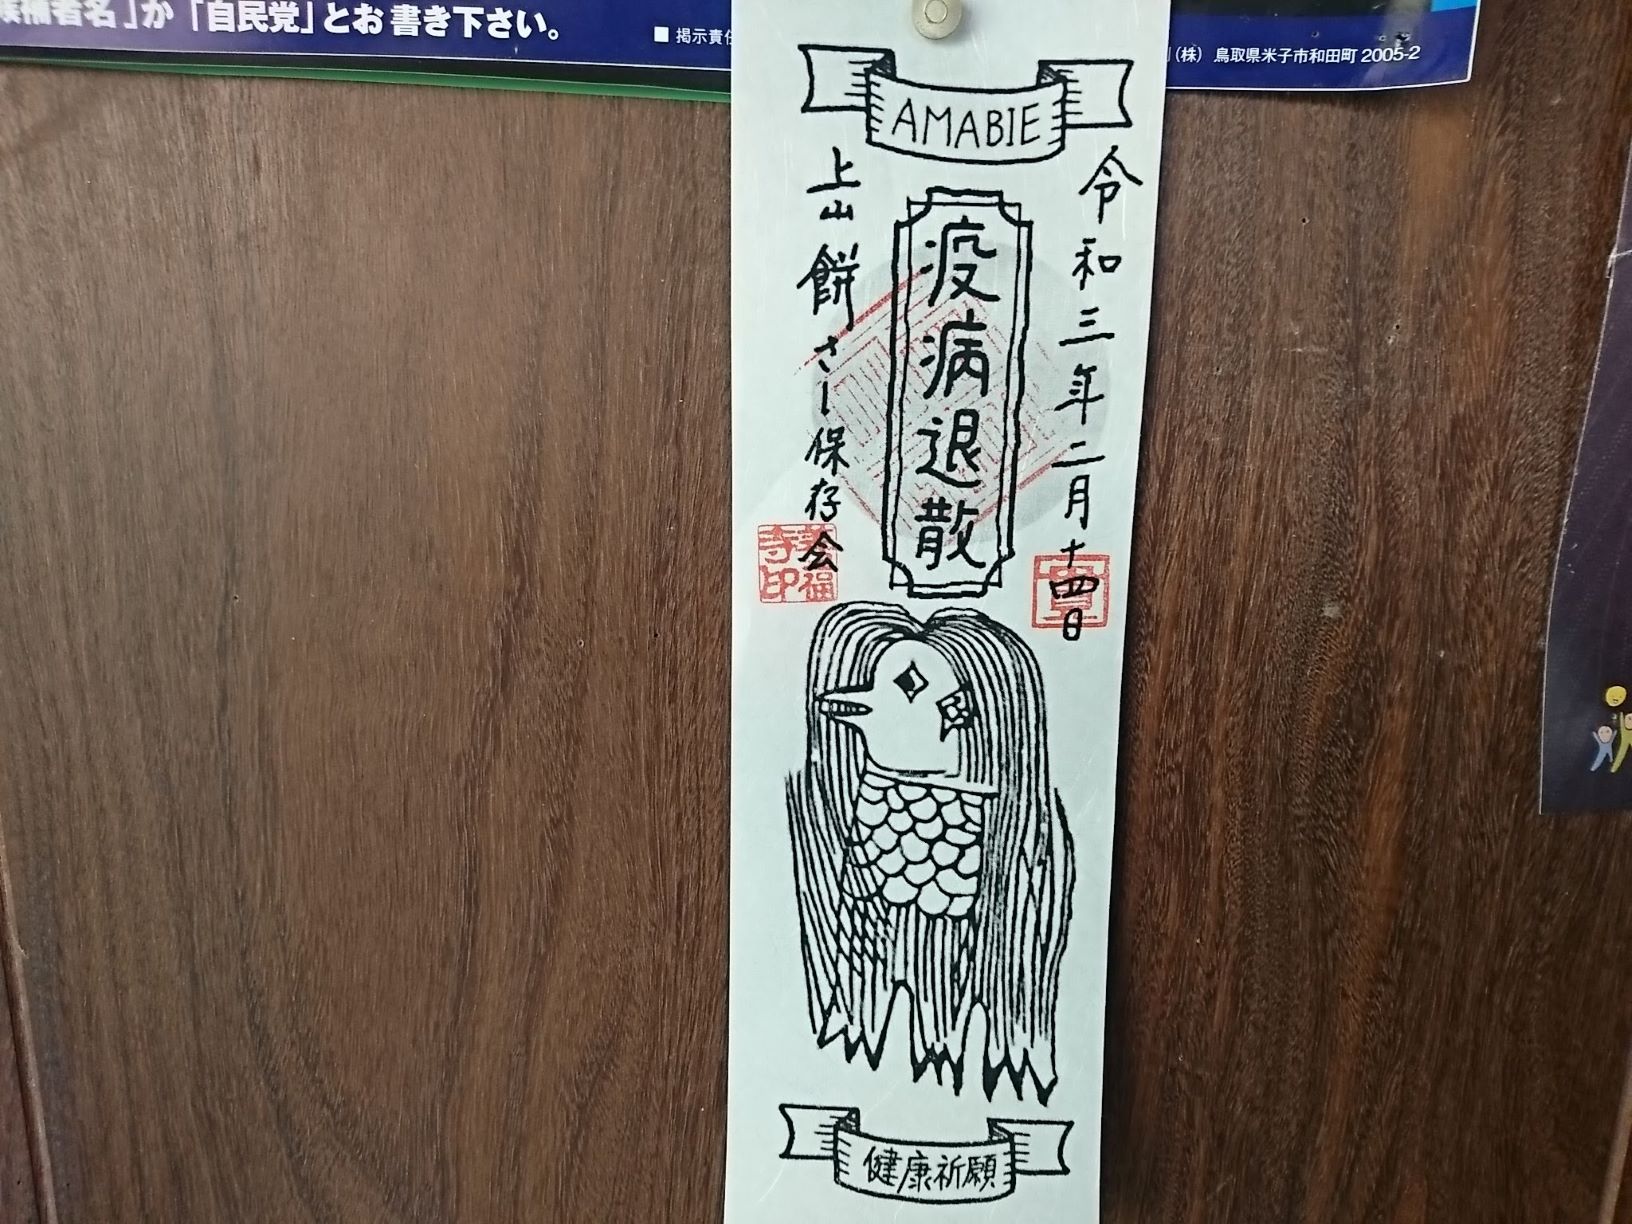 候補者名」か「自民党」とお書き下さい。
■ 掲示責任
(株) 鳥取県米子市和田町 2005-2
AMABIE
令和三年二月十四日
疫病退散
上山餅さし保存会
寺印
健康祈願